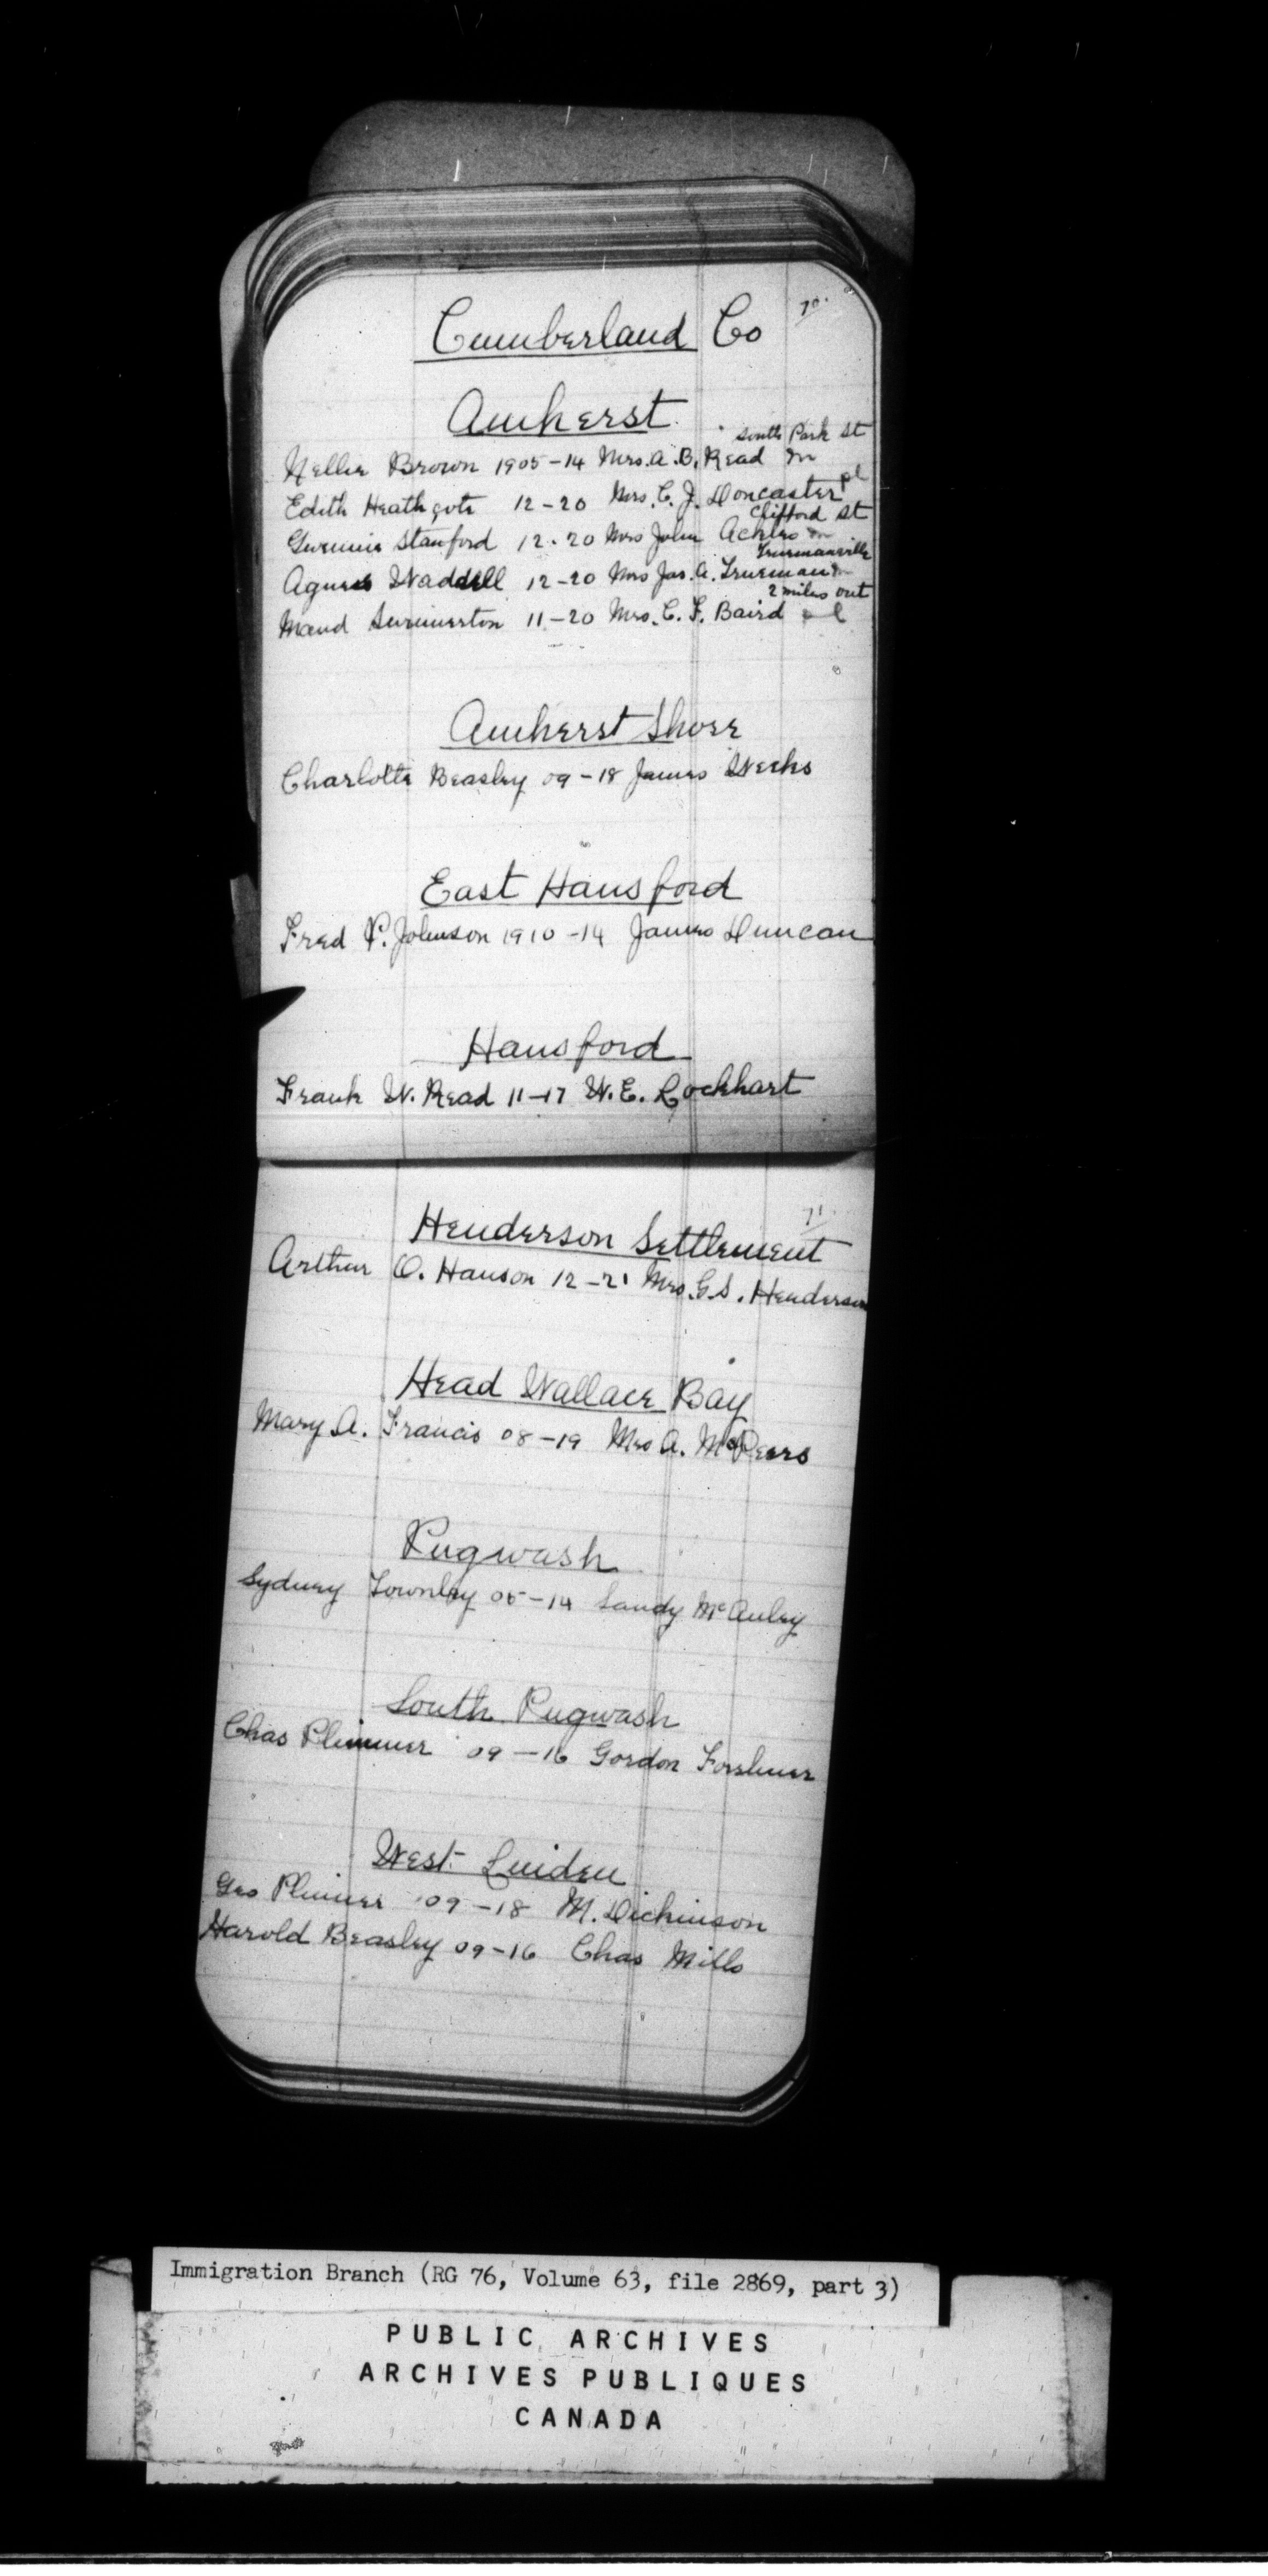 70
Cumberland Co
Amherst
South Park St
Nellie Brown 1905-14 Mrs. A. B. Read m
pl
Edith Heathcote 12-20 Mrs. C. J. Doncaster
Clifford St
Stanford 12-20 Mrs John Ackles m
Truemanville
Agnes Waddell 12-20 Mrs Jas. A. Trueman m
2 miles out
Maud Swinnerton 11-20 Mrs. C. F. Baird
Amherst Shore
Charlotte Beasley 09-18 James Weeks
East Hansford
Fred P. Johnson 1910-14 James Duncan
Hansford
Frank W. Read 11-17 W. E. Lockhart
71
Henderson Settlement
Arthur O. Hanson 12-21 Mrs. G. S. Henderson
Head Wallace Bay
Mary A. Francis 08-19 Mrs A.
Pugwash
Sydney Townley 05-14 Sandy McAuley
South Pugwash
Chas Plimmer 09-16 Gordon
West Linden
Geo Plimer 09-18 M. Dickinson
Harold Beasley 09-16 Chas Mills
Immigration Branch (RG 76, Volume 63, file 2869, part 3)
PUBLIC ARCHIVES
ARCHIVES PUBLIQUES
CANADA